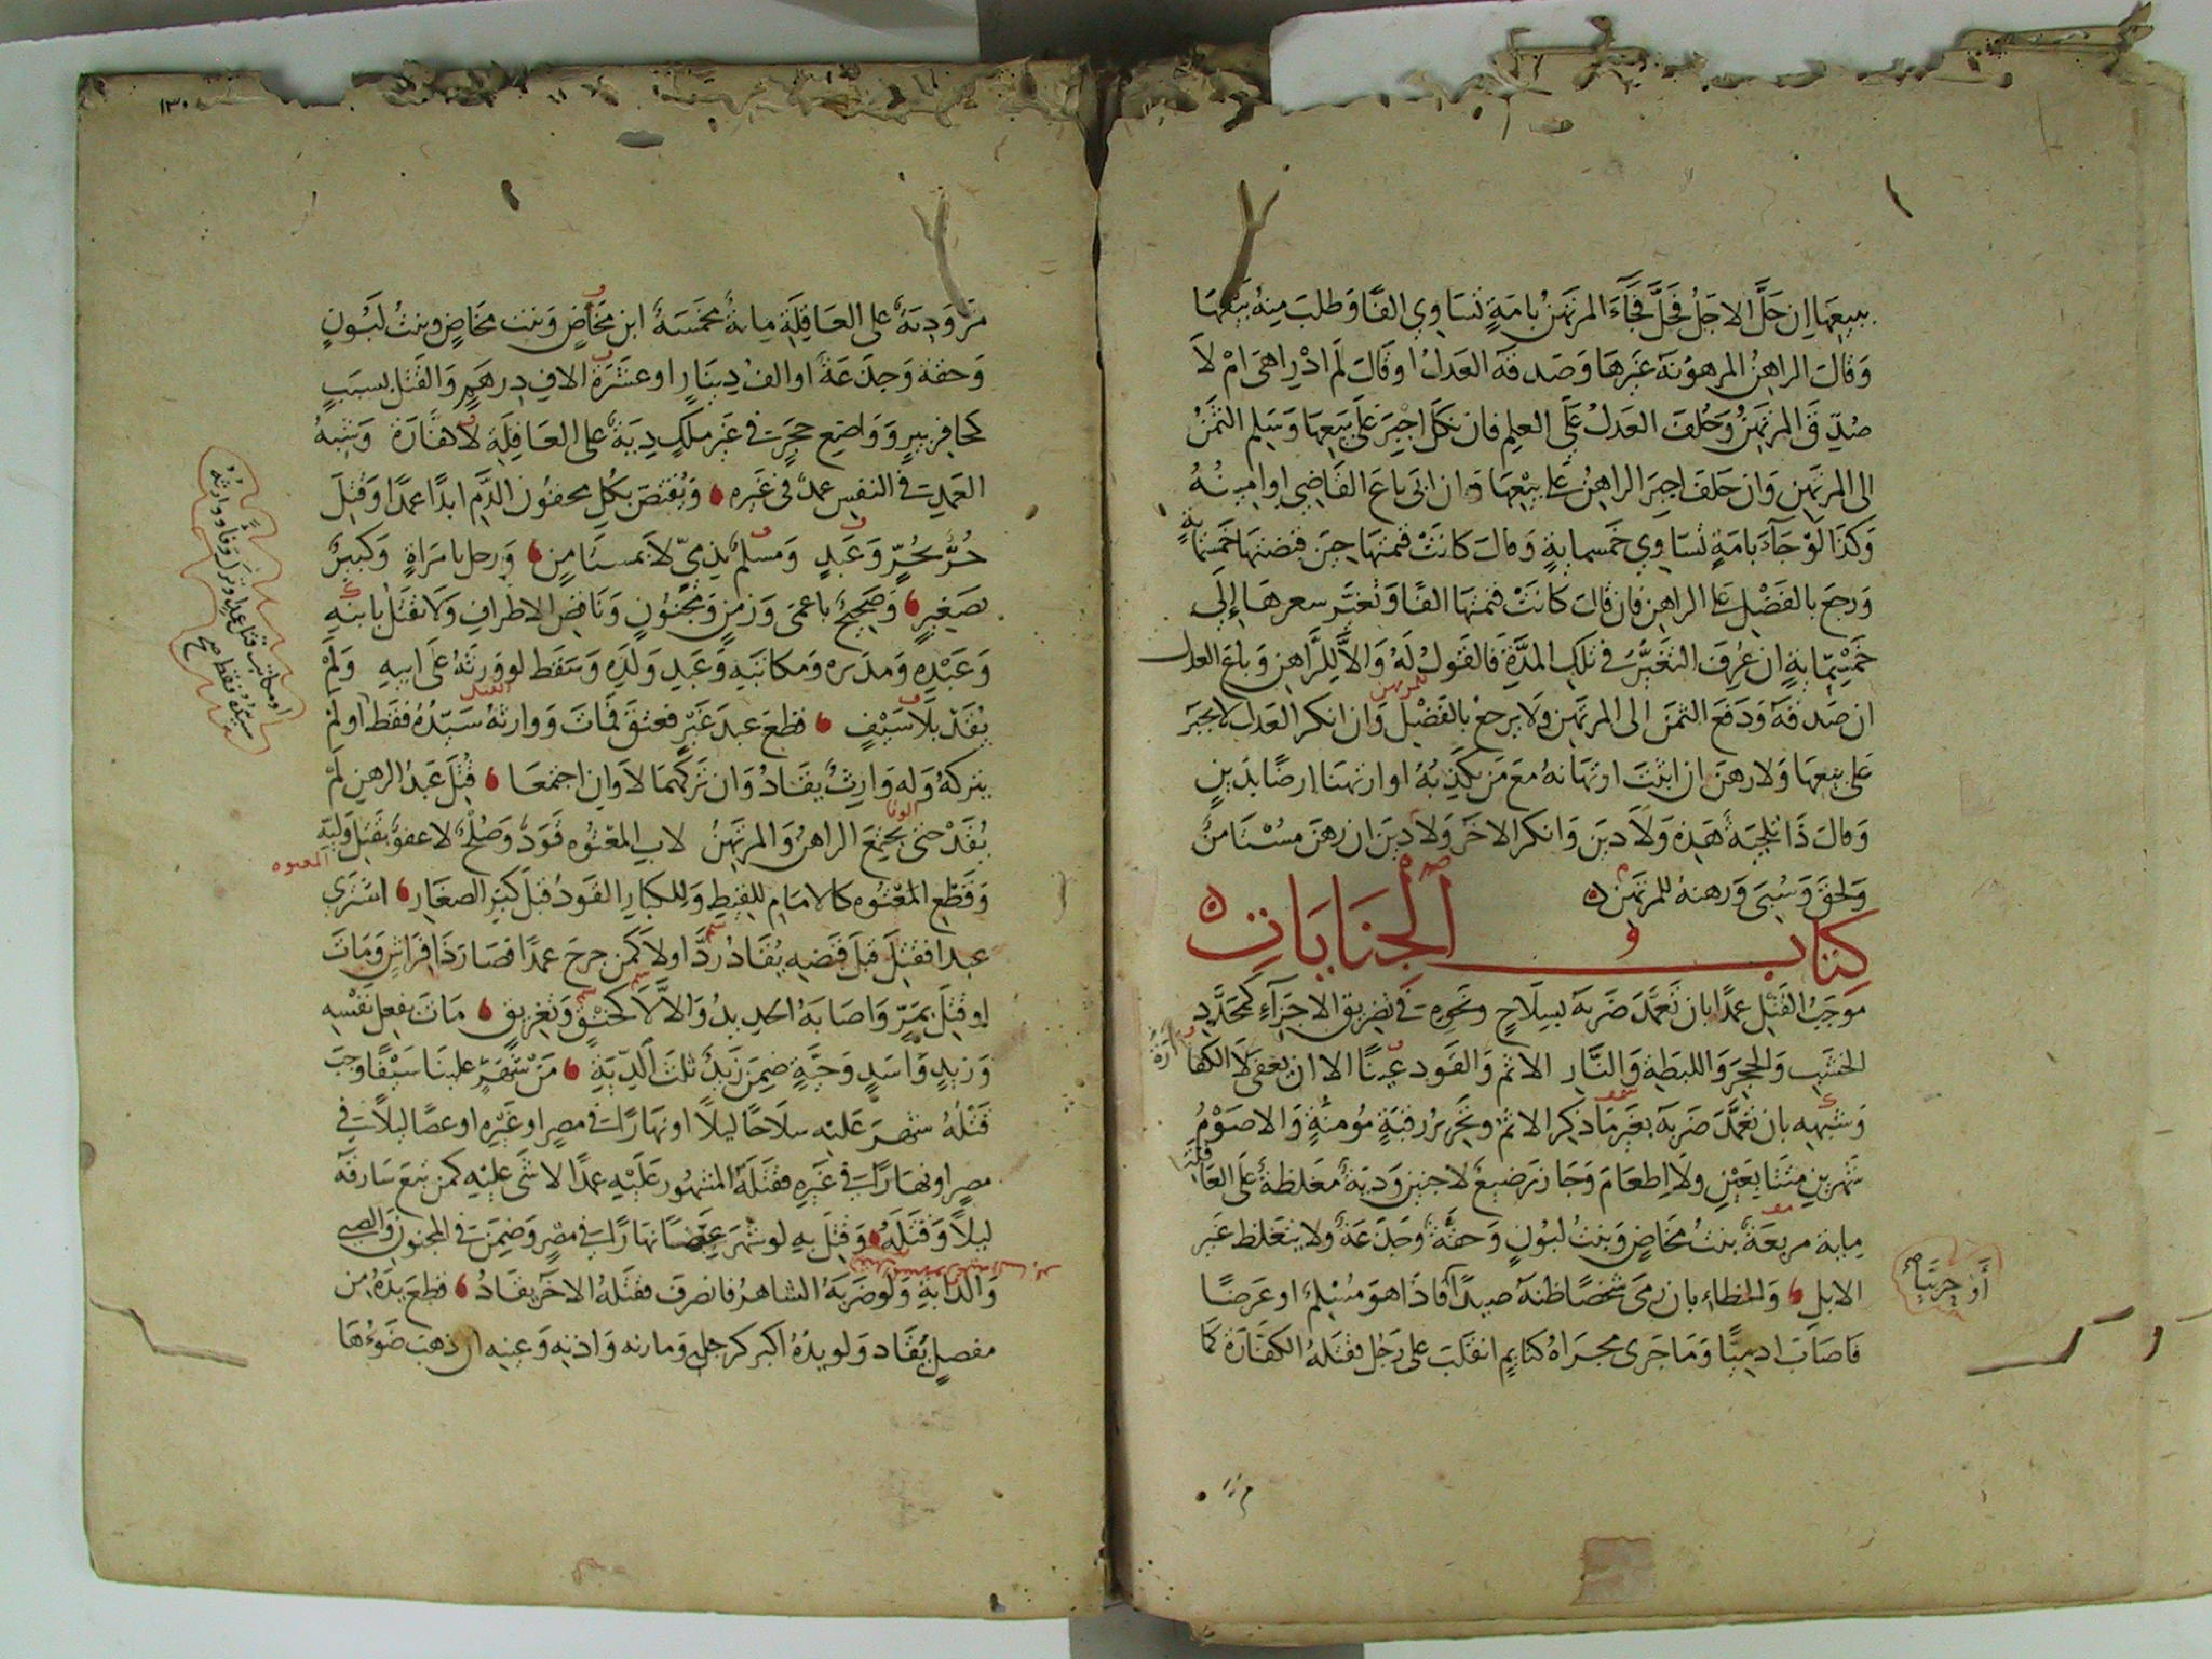 ببيعها إن حل الاجل فحل فجاء المرتهن بامة تساوي الفا وطلب منه بيعها
وقال الراهن المرهونة غيرها وصدقه العدل او قال لم ادر اهى ام لا
صدق المرتهن وحلف العدل على العلم فان نكل اجبر على بيعها وسلم الثمن
الى المرتهن وان حلف اجبر الراهن على بيعها وان ابى باع القاضي او امينه
وكذا لو جاء بامة تساوي خمسماية وقال كانت قيمتها حين قبضتها خمسماية
ورجع بالفضل على الراهن فان قال كانت قيمتها الفا وتغير سعرها إلى
خمسماية ان عرف التغير في تلك المدة فالقول له والا للراهن وباع العدل
ان صدقه ودفع الثمن الى المرتهن ولا يرجع بالفضل وان انكر العدل لا يجبر
على بيعها ولا رهن ان اثبت ارتهانه مع من يكذبه او ارتهنا ارضا بدين
وقال ذا تلجية هذه ولا دين وانكر الاخر ولا دين ان رهن مستامن
ولحق وسبى ورهنه للمرتهن
كتاب الجنايات
موجب القتل عمدا بان تعمد ضربه بسلاح ونحوه في تفريق الاجزاء كمحدد
الخشب والحجر والليطة والنار الاثم والقود عينا الا ان يعفى لا الكفارة
وشبهه بان تعمد ضربه بغير ما ذكر الاثم وتحرير رقبة مؤمنة والا صوم
شهرين متتابعين ولا اطعام وجاز رضيع لا جنين ودية مغلظة على العاقلة
ماية مربعة بنت مخاض وبنت لبون وحقة وجذعة ولا يتغلظ غير
الابل والخطاء بان رمى شخصا ظنه صيدا فاذا هو مسلم او عرضا
أو حربيا صح
فاصاب ادميا وما جرى مجراه كنايم انقلب على رجل فقتله الكفارة كما
مر ودية على العاقلة ماية مخمسة ابن مخاض وبنت مخاض وبنت لبون
وحقة وجذعة او الف دينار او عشرة الاف درهم والقتل بسبب
كحافر بير وواضع حجر في غير ملك دية على العاقلة لا كفارة وشبه
العمد في النفس عمد في غيره ويقتص بكل محقون الدم ابدا عمدا وقتل
حر بحر وعبد ومسلم بذمي لا بمستامن ورجل بامراة وكبير
بصغير وصحيح باعمى وزمن ومجنون وناقص الاطراف ولا يقتل بابنه
وعبده ومدبره ومكاتبه وعبد ولده وسقط لو ورثه على ابيه ولم
يقد بلا سيف قطع عبد غير فعتق فمات ووارثه سيده فقط او لم
يتركه وله وارث يقاد وان تركهما لا وان اجتمعا قتل عبد الرهن لم
يقد حتى يجتمع الراهن والمرتهن لاب المعتوه قود وصلح لا عفو بقتل وليه
وقطع المعتوه كالامام للقيط وللكبار القود قبل كبر الصغار اشترى
عبدا فقتل قبل قبضه يقاد رد او لا كمن جرح عمدا فصار ذا فراش ومات
او قتل بمر واصابه الحديد والا لا كخنق وتغريق مات بفعل نفسه
وزيد واسد وحية ضمن زيد ثلث الدية من شهر علينا سيفا وجب
قتله شهر عليه سلاحا ليلا او نهارا في مصر او غيره او عصا ليلا في
مصر او نهارا في غيره فقتله المشهور عليه عمدا لا شى عليه كمن تبع سارقه
ليلا وقتله وقتل به لو شهر عصا نهارا في مصر وضمن في المجنون والصبي
والدابة ولو ضربه الشاهر فانصرف فقتله الاخر يقاد قطع يده من
مفصل يقاد ولو يده اكبر كرجل ومارنه واذنه وعينه ان ذهب ضوءها